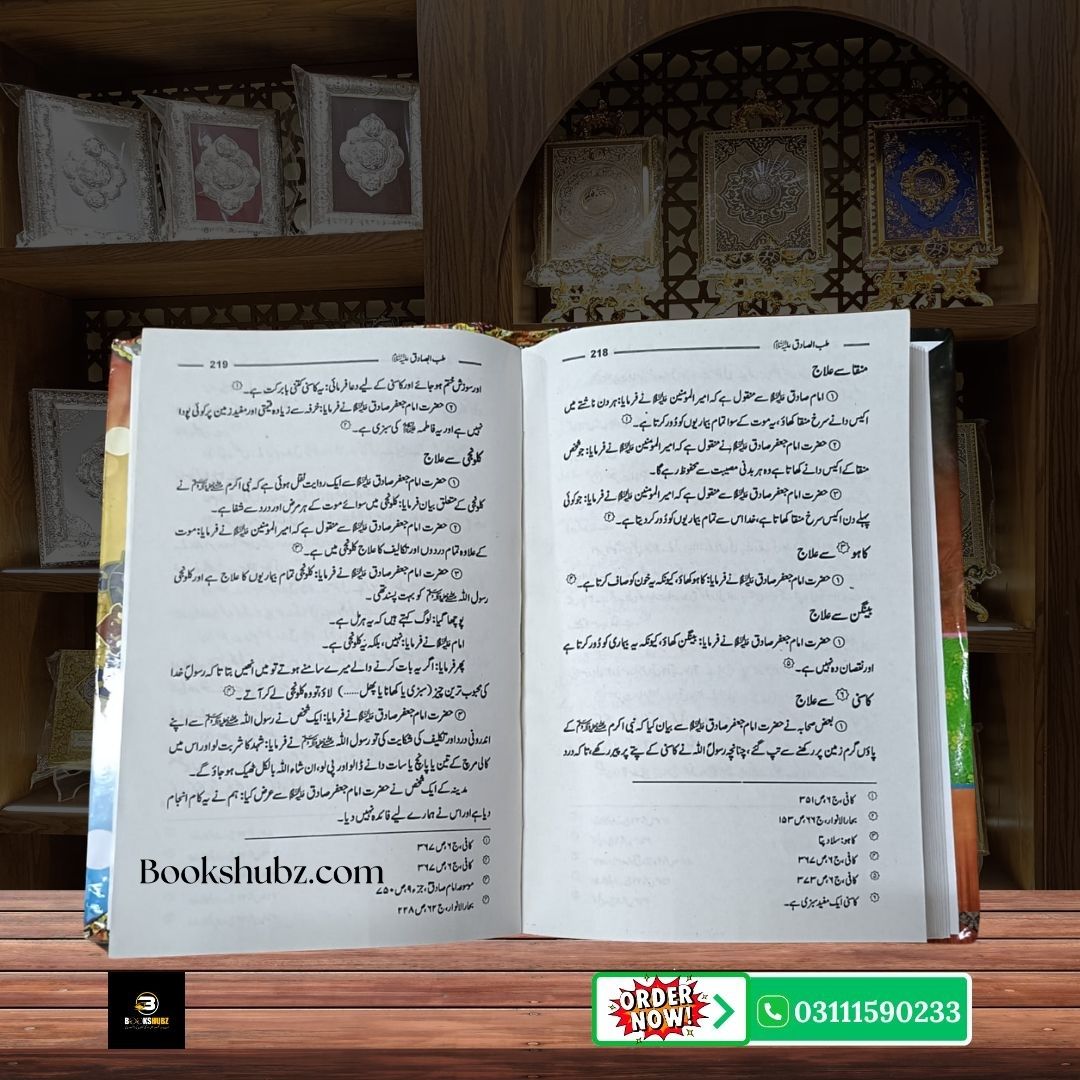 218
طب الصادق علیہ السلام
منقا سے علاج
① امام صادق علیہ السلام سے منقول ہے کہ امیر المومنین علیہ السلام نے فرمایا: ہر دن ناشتے میں
اکیس دانے سرخ منقا کھاؤ، یہ موت کے سوا تمام بیماریوں کو دُور کرتا ہے۔①
② حضرت امام جعفر صادق علیہ السلام نے منقول ہے کہ امیر المومنین علیہ السلام نے فرمایا: جو شخص
منقا کے اکیس دانے کھاتا ہے وہ ہر بدنی مصیبت سے محفوظ رہے گا۔
③ حضرت امام جعفر صادق علیہ السلام سے منقول ہے کہ امیر المومنین علیہ السلام نے فرمایا: جو کوئی
پہلے دن اکیس سرخ منقا کھاتا ہے، خدا اس سے تمام بیماریوں کو دُور کر دیتا ہے۔②
کاہو③ سے علاج
① حضرت امام جعفر صادق علیہ السلام نے فرمایا: کاہو کھاؤ، کیونکہ یہ خون کو صاف کرتا ہے۔④
بینگن سے علاج
① حضرت امام جعفر صادق علیہ السلام نے فرمایا: بینگن کھاؤ، کیونکہ یہ بیماری کو دُور کرتا ہے
اور نقصان دہ نہیں ہے۔⑤
کاسنی⑥ سے علاج
① بعض صحابہ نے حضرت امام جعفر صادق علیہ السلام سے بیان کیا کہ نبی اکرم ﷺ کے
پاؤں گرم زمین پر رکھنے سے تپ گئے، چنانچہ رسولؐ اللہ نے کاسنی کے پتے پر پیر رکھے، تا کہ درد
① کافی، ج ۶، ص ۳۵۱
② بحار الانوار، ج ۶۶، ص ۱۵۳
③ کاہو: سلاد پتا
④ کافی، ج ۶، ص ۳۶۷
⑤ کافی، ج ۶، ص ۳۷۳
⑥ کاسنی ایک مفید سبزی ہے۔
219
طب الصادق علیہ السلام
اور سوزش ختم ہو جائے اور کاسنی کے لیے دعا فرمائی: یہ کاسنی کتنی بابرکت ہے۔①
② حضرت امام جعفر صادق علیہ السلام نے فرمایا: خرفہ سے زیادہ قیمتی اور مفید زمین پر کوئی پودا
نہیں ہے اور یہ فاطمہ کی سبزی ہے۔②
کلونجی سے علاج
① حضرت امام جعفر صادق علیہ السلام سے ایک روایت نقل ہوئی ہے کہ نبی اکرم ﷺ نے
کلونجی کے متعلق بیان فرمایا: کلونجی میں سوائے موت کے ہر مرض اور درد سے شفا ہے۔
② حضرت امام جعفر صادق علیہ السلام سے منقول ہے کہ امیر المومنین علیہ السلام نے فرمایا: موت
کے علاوہ تمام دردوں اور تکالیف کا علاج کلونجی میں ہے۔③
③ حضرت امام جعفر صادق علیہ السلام نے فرمایا: کلونجی تمام بیماریوں کا علاج ہے اور کلونجی
رسول اللہ ﷺ کو بہت پسند تھی۔
پوچھا گیا: لوگ کہتے ہیں کہ یہ ہرمل ہے۔
امام علیہ السلام نے فرمایا: نہیں، بلکہ یہ کلونجی ہے۔
پھر فرمایا: اگر یہ بات کرنے والے میرے سامنے ہوتے تو میں انھیں بتاتا کہ رسولِ خدا
کی محبوب ترین چیز (سبزی یا کھانا یا پھل ......) لاؤ، تو وہ کلونجی لے کر آتے۔④
④ حضرت امام جعفر صادق علیہ السلام نے فرمایا: ایک شخص نے رسول اللہ ﷺ سے اپنے
اندرونی درد اور تکلیف کی شکایت کی تو رسول اللہ ﷺ نے فرمایا: شہد کا شربت لو اور اس میں
کالی مرچ کے تین یا پانچ یا سات دانے ڈالو اور پی لو، ان شاء اللہ بالکل ٹھیک ہو جاؤ گے۔
مدینہ کے ایک شخص نے حضرت امام جعفر صادق علیہ السلام سے عرض کیا: ہم نے یہ کام انجام
دیا ہے اور اس نے ہمارے لیے فائدہ نہیں دیا۔
① کافی، ج ۶، ص ۳۶۷
② کافی، ج ۶، ص ۳۶۷
③ موسوعہ امام صادق، جزء ۹، ص ۷۵۰
④ بحار الانوار، ج ۶۲، ص ۲۲۸
Bookshubz.com
BOOKSHUBZ
ORDER NOW!
03111590233